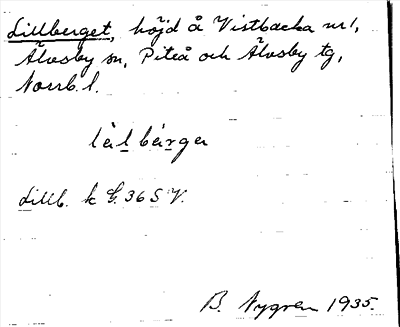 Lillberget, höjd å Vistbacka nr 1,
Älvsby sn, Piteå och Älvsby tg,
Norrb. l.
lìlbärga
Lillb. k G. 36 S V.
B. Nygren 1935.